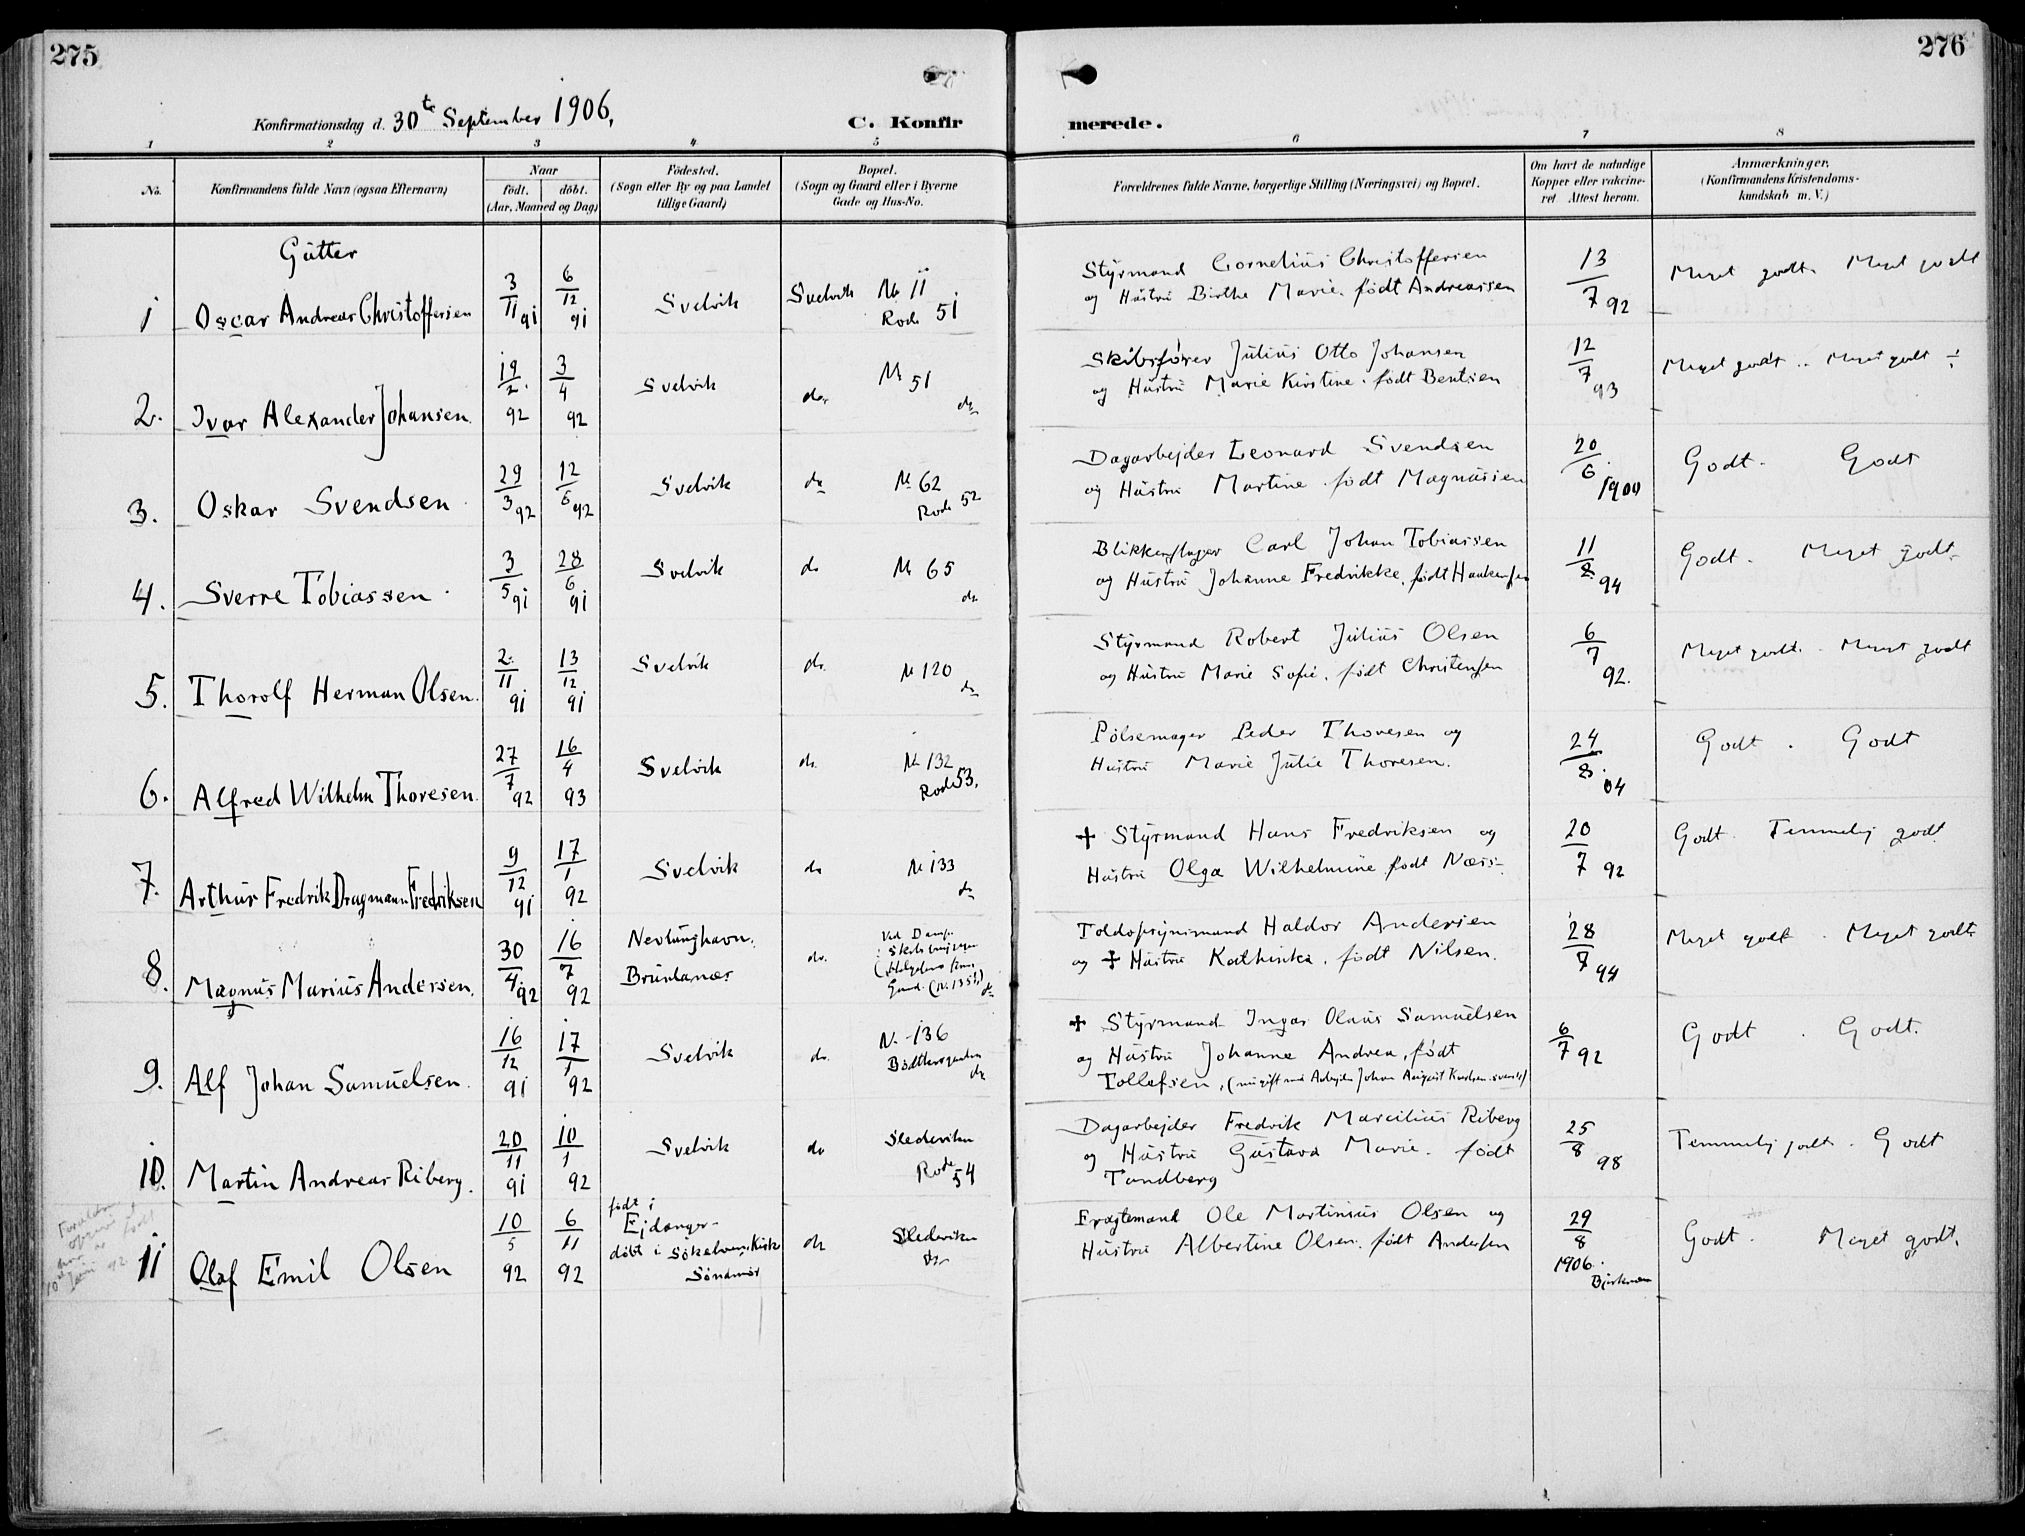 275
276
Konfirmationsdag d. 30te September 1906.
C. Konfir
merede.
1 2 3 4 5 6 7 8
No.
Konfirmandens fulde Navn (ogsaa Efternavn)
Naar
født. døbt.
(Aar, Maaned og Dag)
Fødested.
(Sogn eller By og paa Landet
tillige Gaard)
Bopæl.
(Sogn og Gaard eller i Byerne
Gade og Hus-No.
Forældrenes fulde Navne, borgerlige Stilling (Næringsvei) og Bopæl.
Om havt de naturlige
Kopper eller vakcine-
ret Attest herom.
Anmærkninger.
(Konfirmandens Kristendoms-
kundskab m. V.)
Gutter
1 Oscar Andreas Christoffersen 3/11 91 6/12 91 Svelvik Svelvik № 11
Rode 51
Styrmand Cornelius Christoffersen
og Hustru Birthe Marie. født Andreassen
13/7 92 Meget godt. Meget godt
2. Ivar Alexander Johansen. 19/2. 92 3/4 92 Svelvik do. № 51
do
Skibsfører Julius Otto Johansen
og Hustru Marie Kirstine. født Bentsen
12/7 93 Meget godt .. Meget godt ÷
3. Oskar Svendsen 29/3 92 12/6 92 Svelvik do № 62
Rode 52
Dagarbejder Leonard Svendsen
og Hustru Martine født Magnussen
20/6. 1900 Godt. Godt
4. Sverre Tobiassen. 3/5 91 28/6 91 Svelvik do № 65
do.
Blikkenslager Carl Johan Tobiassen
og Hustru Johanne Fredrikke, født Haakensen
11/8. 94 Godt. Meget godt.
5. Thorolf Herman Olsen. 2./11 91 13/12 91 Svelvik do. № 120
do
Styrmand Robert Julius Olsen
og Hustru Marie Sofie. født Christensen
6/7 92. Meget godt. Meget godt
6. Alfred Wilhelm Thoresen. 27/7 92 16/4 93 Svelvik do. № 132
Rode 53.
Pølsemager Peder Thoresen og
Hustru Marie Julie Thoresen.
24/8. 04 Godt. Godt
7. Arthur Fredrik Dragmann Fredriksen 9/12 91 17/1 92 Svelvik do № 133
do
✝ Styrmand Hans Fredriksen og
Hustru Olga Wilhelmine født Næss.
20/7 92 Godt. Temmelig godt
8. Magnus Marius Andersen. 30/4. 92 16/7 92 Nevlunghavn.
Brunlanæs
do.
Ved Damp-
Gaard. (№ 135) do
Toldopsynsmand Haldor Andersen
og ✝ Hustru Kathinka. født Nilsen.
28/7 94 Meget godt. Meget godt.
9. Alf Johan Samuelsen. 16/12 91 17/1 92 Svelvik do. № 136
do
✝ Styrmand Ingar Olaus Samuelsen
og Hustru Johanne Andrea, født
Tollefsen, (nu gift med Arbejder Johan August Karlsen svensk)
6/7 92 Godt. Godt.
10. Martin Andreas Riberg. 20/11 91 10/1 92 Svelvik do Slederiken
Rode 54
Dagarbejder Fredrik Marcilius Riberg
og Hustru Gustava Marie. født
Tandberg
25/8 98 Temmelig godt. Godt
10de Juni 92
11 Olaf Emil Olsen 10/5 92 6/11 92 født i
Ejdanger-
døbt i Søkelven Kirke
Søndmør
do Slederiken
do
Fragtemand Ole Martinius Olsen og
Hustru Albertine Olsen. født Andersen
29/8 1906.
Godt. Meget godt.